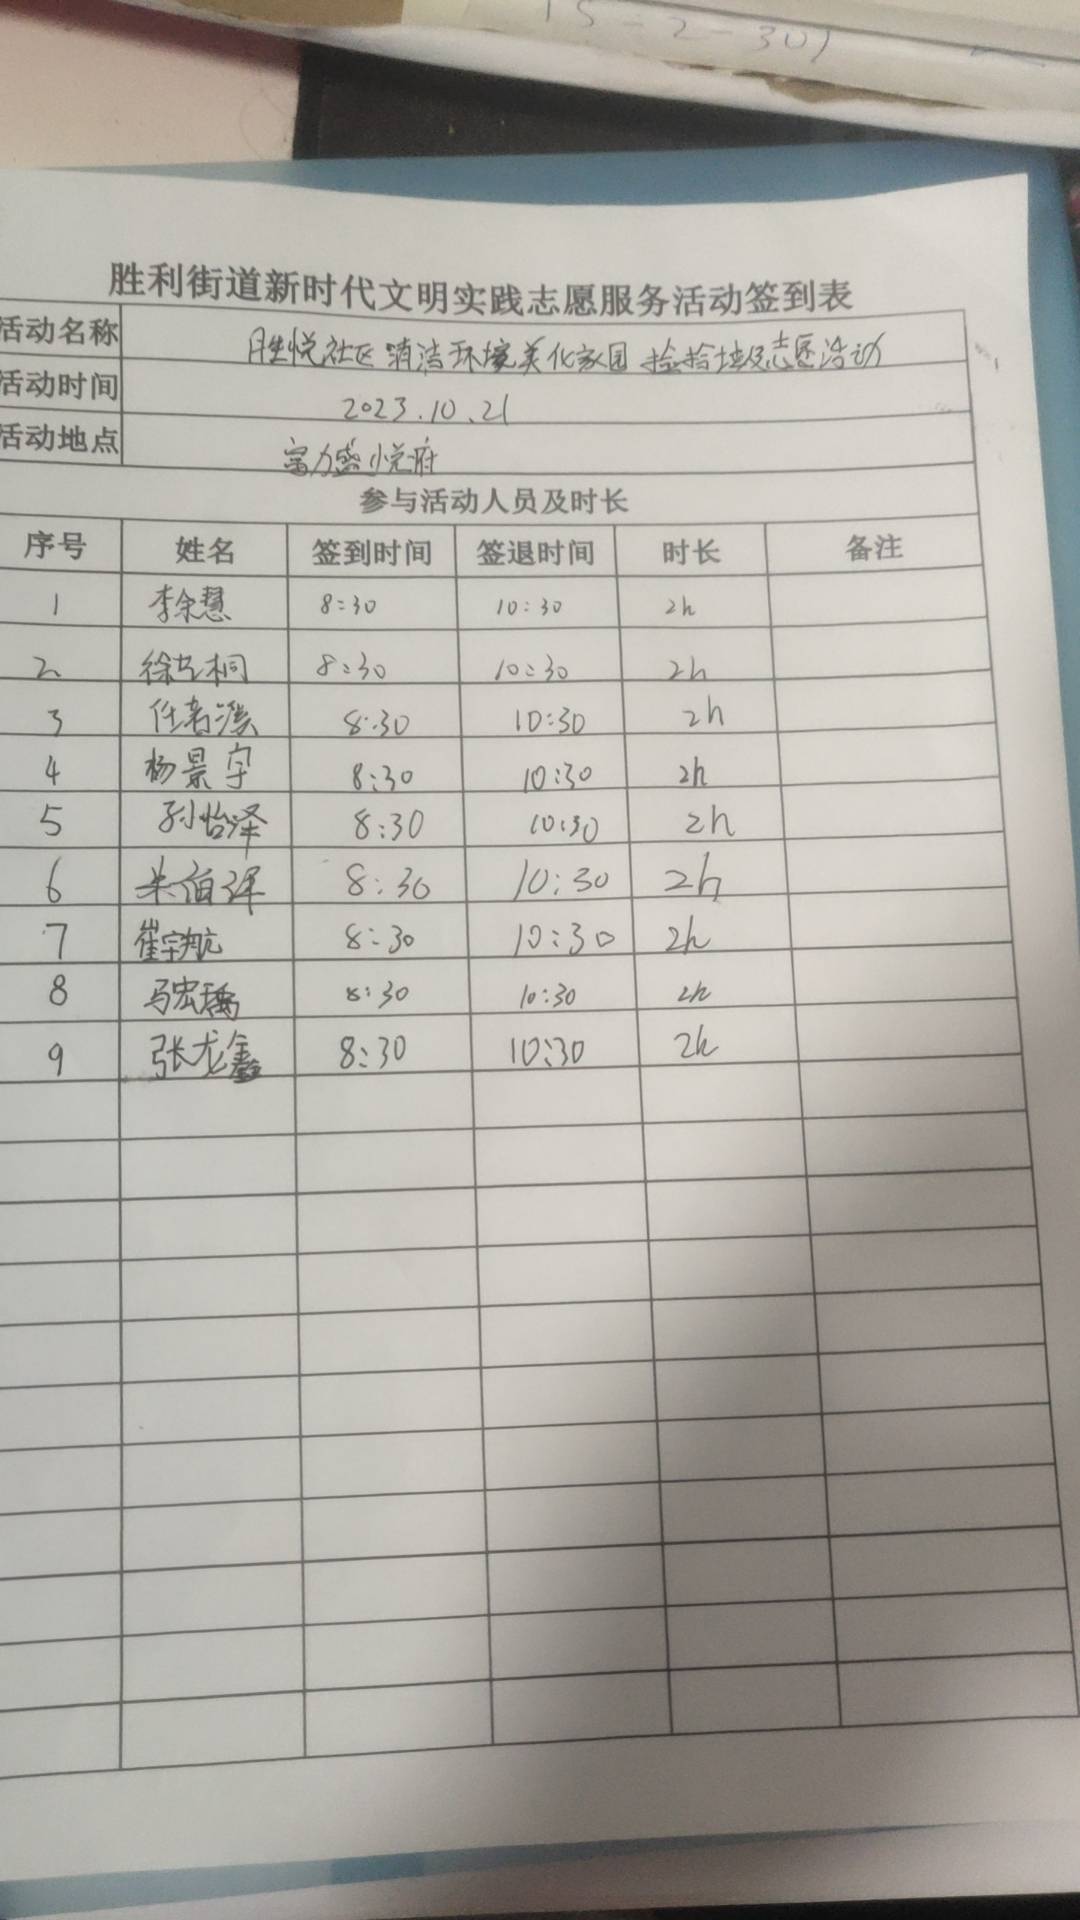 15-2-301
胜利街道新时代文明实践志愿服务活动签到表
活动名称 胜悦社区清洁环境美化家园捡拾垃圾志愿活动
活动时间 2023.10.21
活动地点 富力盛悦府
参与活动人员及时长
序号 姓名 签到时间 签退时间 时长 备注
1 李余慧 8:30 10:30 2h
2 徐艺桐 8:30 10:30 2h
3 任 8:30 10:30 2h
4 杨景宇 8:30 10:30 2h
5 孙怡泽 8:30 10:30 2h
6 朱 8:30 10:30 2h
7 崔宇航 8:30 10:30 2h
8 马宏 8:30 10:30 2h
9 张龙鑫 8:30 10:30 2h